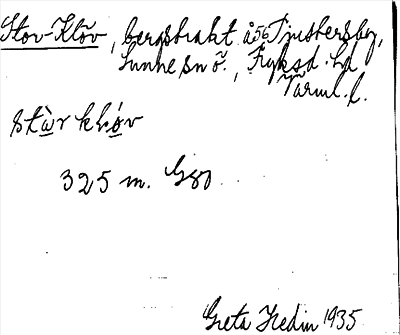 Stor-Klöv, bergstrakt å 56 Tjustersby,
Sunne sn ö., Fryksd. hd
Värml. l.
stẁr kḷọ́v
325 m. Gso
Greta Hedin 1935